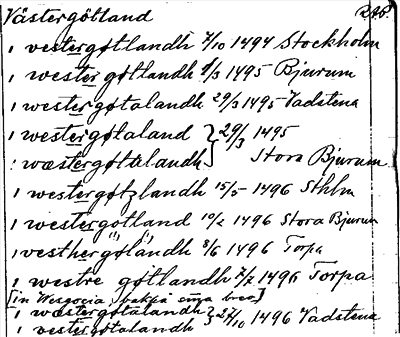 Västergötland
i vestergøtlandh 7/10 1494 Stockholm
i westergøtlandh 1/3 1495 Bjurum
i westergøtalandh 29/3 1495 Vadstena
i westergøtaland } 29/3 1495
i wæstergøtalandh } Stora Bjurum
i westergøtzlandh 15/5 1496 Sthlm
i westergotland 10/2 1496 Stora Bjurum
i vesthergölåndh 8/6 1496 Torpa
i westre gøtlandh 7/2 1496 Torpa
[in Wesgocia, bakpå sma brev]
i wæstergøtalandh } 27/10 1496 Vadstena
i vestergøtalandh